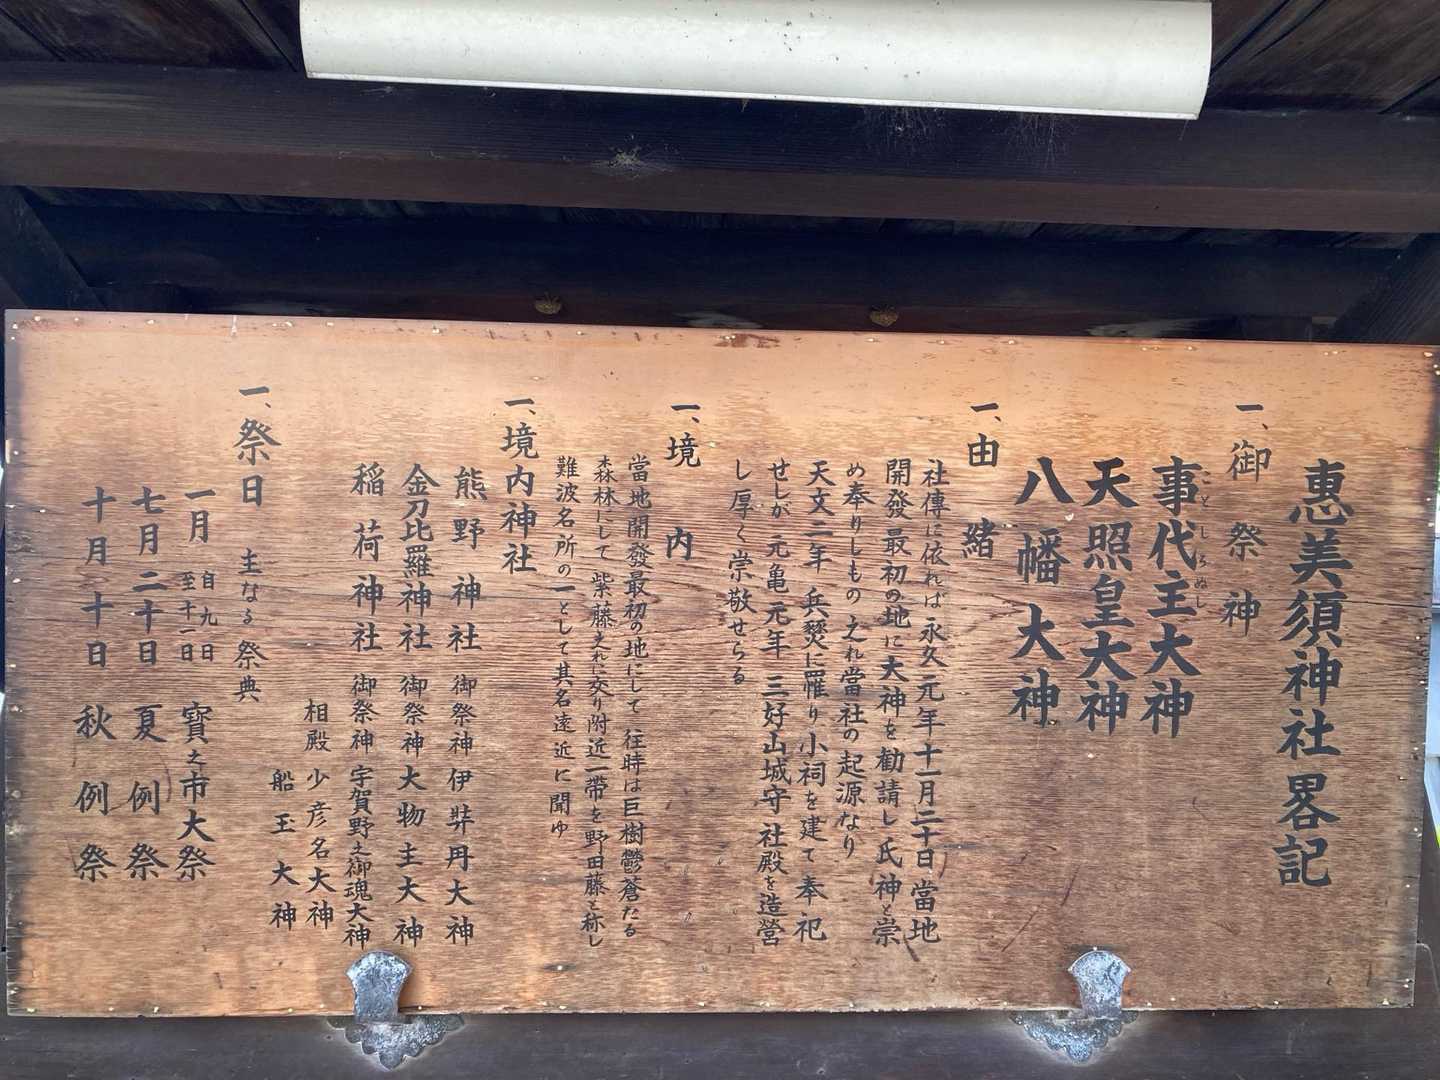 惠美須神社畧記
一、御祭神
事代主大神
ことしろぬし
天照皇大神
八幡大神
一、由緒
社傳に依れば永久元年十一月二十日當地
開發最初の地に大神を勸請し氏神と崇
め奉りしもの之れ當社の起源なり
天文二年 兵燹に罹り小祠を建て奉祀
せしが 元亀元年 三好山城守 社殿を造營
し厚く崇敬せらる
一、境内
當地開發最初の地にして 往時は巨樹鬱蒼たる
森林にして 紫藤之れに交り附近一帶を野田藤と称し
難波名所の一として其名遠近に聞ゆ
一、境内神社
熊野神社 御祭神 伊弉冉大神
金刀比羅神社 御祭神 大物主大神
稲荷神社 御祭神 宇賀野之御魂大神
相殿 少彦名大神
船玉大神
一、祭日 主なる祭典
一月 自九日 至十一日 寶之市大祭
七月二十日 夏例祭
十月十日 秋例祭